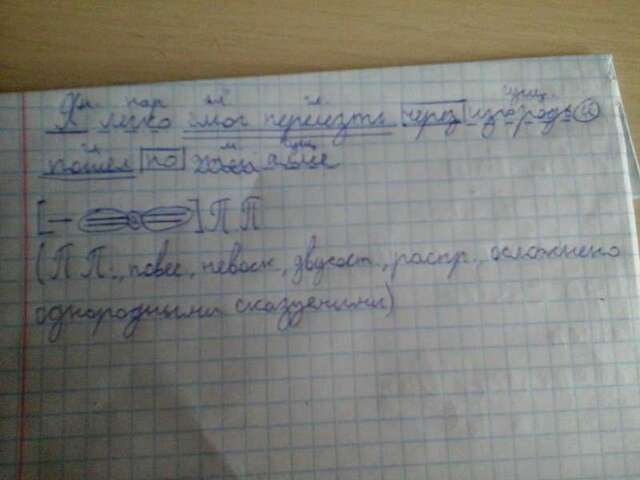 м. нар гл гл сущ.
Я легко смог перелезть через изгородь и
гл м сущ
пошел по
[— = и =] ПП
(ПП., повес., невоск., двусост., распр., осложнено
однородными сказуемыми)